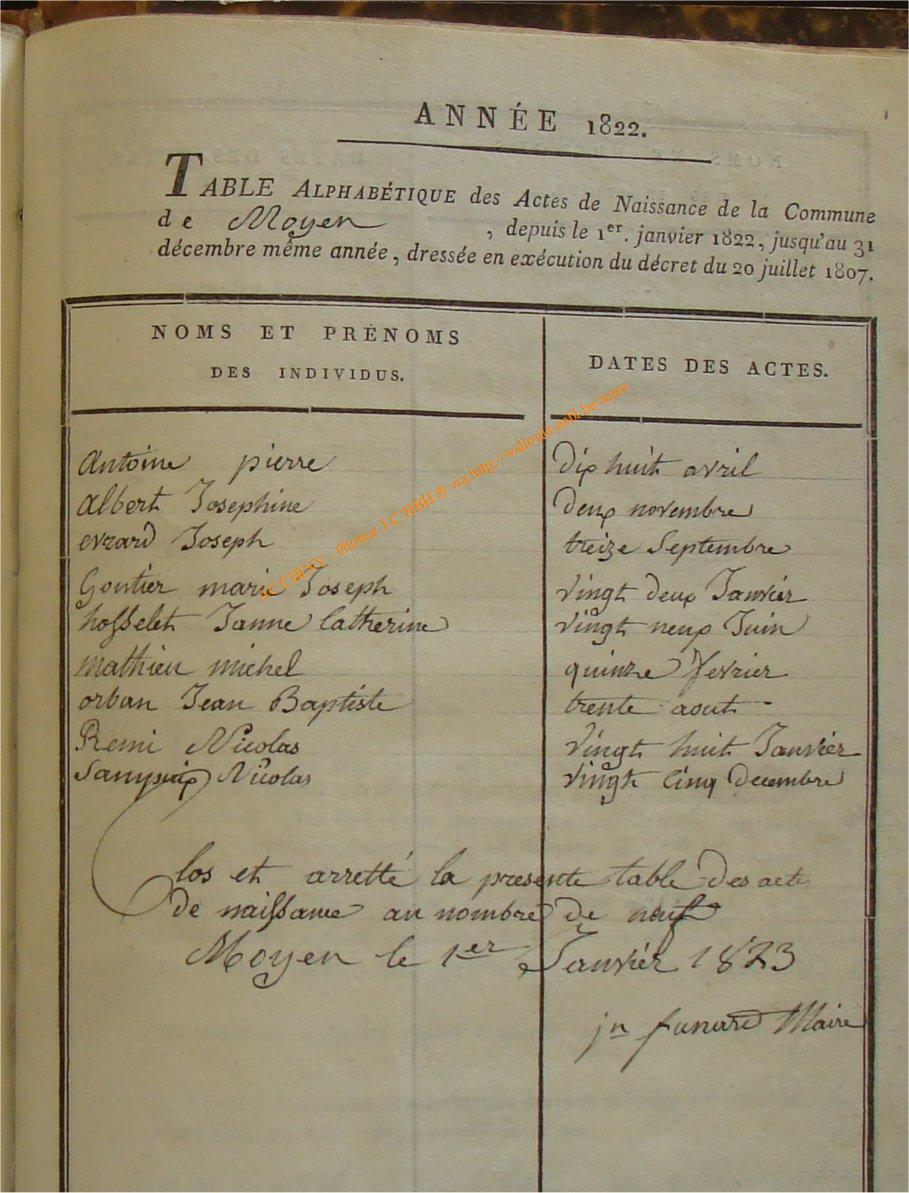 ANNÉE 1822.
TABLE ALPHABÉTIQUE des Actes de Naissance de la Commune
de Moyen , depuis le 1er. janvier 1822, jusqu'au 31
décembre même année, dressée en exécution du décret du 20 juillet 1807.
NOMS ET PRÉNOMS
DES INDIVIDUS.
DATES DES ACTES.
Antoine pierre dix huit avril
Albert Josephine deux novembre
evrard Joseph treize Septembre
Goutier marie Joseph vingt deux Janvier
hosselet Janne Catherine vingt neux Juin
mathieu michel quinze fevrier
orban Jean Baptiste trente aout
Remi Nicolas vingt huit Janvier
Nicolas vingt Cinq Decembre
Clos et arretté la presente table des acte
de naissance au nombre de neuf
Moyen le 1er Janviér 1823
jn Maire
Photos J.C HBH ® via http://wallonia.asbl.be/actes